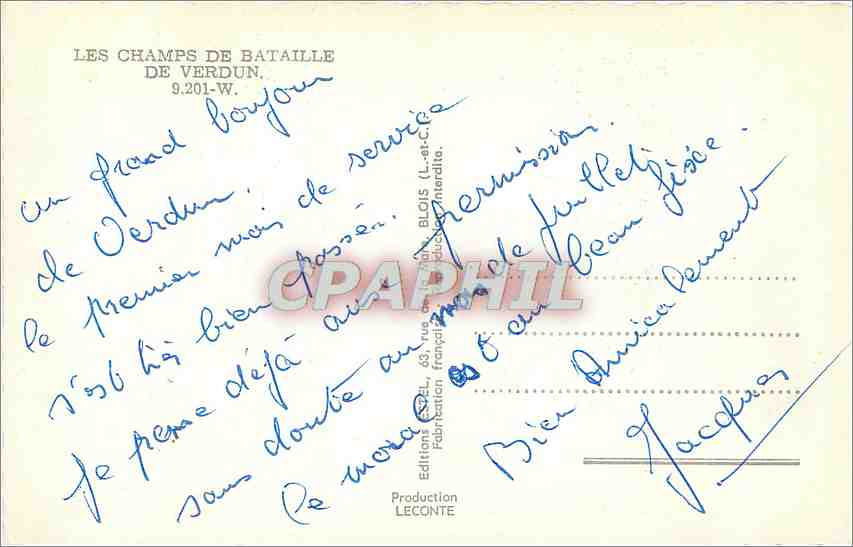 LES CHAMPS DE BATAILLE
DE VERDUN.
9.201-W.
un grand bonjour
de Verdun.
le premier mois de service
s'est très bien passé.
Je pense déjà aux permission.
sans doute au mois de juillet.
le moral est au beau fixe.
Bien Amicalement
Jacques
Editions ESTEL, 63, rue de la Mare, BLOIS (L.-et-C.)
Fabrication française - Reproduction interdite.
Production
LECONTE
CPAPHIL